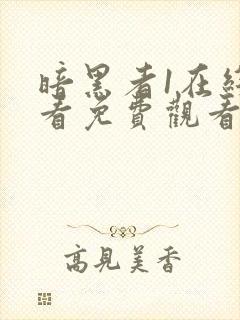 暗黑者1在線
看免費觀看
高見美香